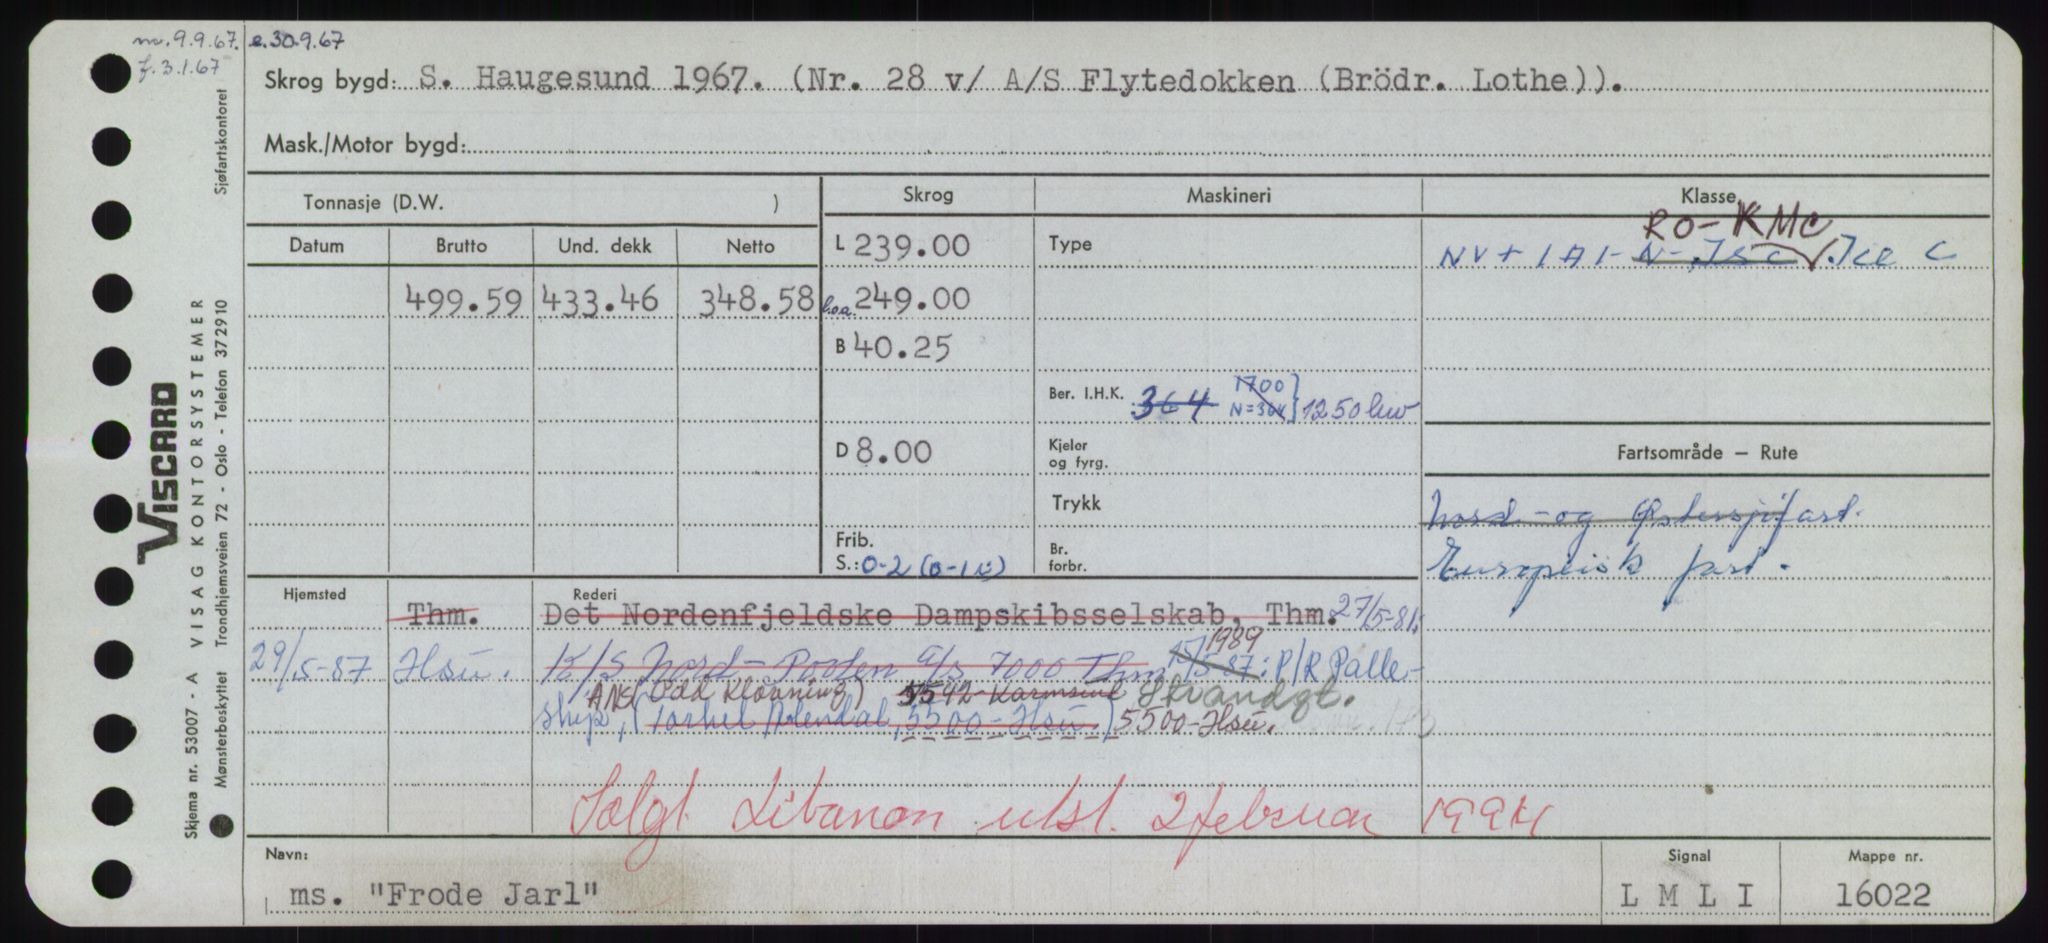 no. 9.9.67. e. 30.9.67
f. 3.1.67
Skrog bygd: S. Haugesund 1967. (Nr. 28 v/ A/S Flytedokken (Brödr. Lothe)).
Mask./Motor bygd:
Tonnasje (D.W. )
Skrog
Maskineri
Klasse
RO-KMC
Datum Brutto Und. dekk Netto
L 239.00
Type
NV + 1A1- N-, Isc. Ice C
499.59 433.46 348.58
l.o.a. 249.00
B 40.25
Ber. I.H.K. 364 1700 N=364 } 1250 kw
D 8.00
Kjeler og fyrg.
Fartsområde – Rute
Trykk
Nord- og Østersjøfart.
Frib.
S.: 0-2 (0-1 )
Br. forbr.
Europeisk fart.
Hjemsted
Rederi
Thm. Det Nordenfjeldske Dampskibsselskab, Thm. 27/5-81:
29/5-87 Hsu. K/S Nord-Posten a/s 7000 Thm 15/5-87: 1989 P/R Palle-
ANS (Odd Kløvning) 5542 Karmsund Strandgt.
ship, (Torkel Alendal, 5500-Hsu.) 5500-Hsu. 173
Solgt Libanon utsl. 2 februar 1994
Navn:
ms. "Frode Jarl"
Signal
L M L I
Mappe nr.
16022
Sjøfartskontoret
VISCARD
VISAG KONTORSYSTEMER
Trondhjemsveien 72 - Oslo - Telefon 372910
Skjema nr. 53007 - A
Mønsterbeskyttet